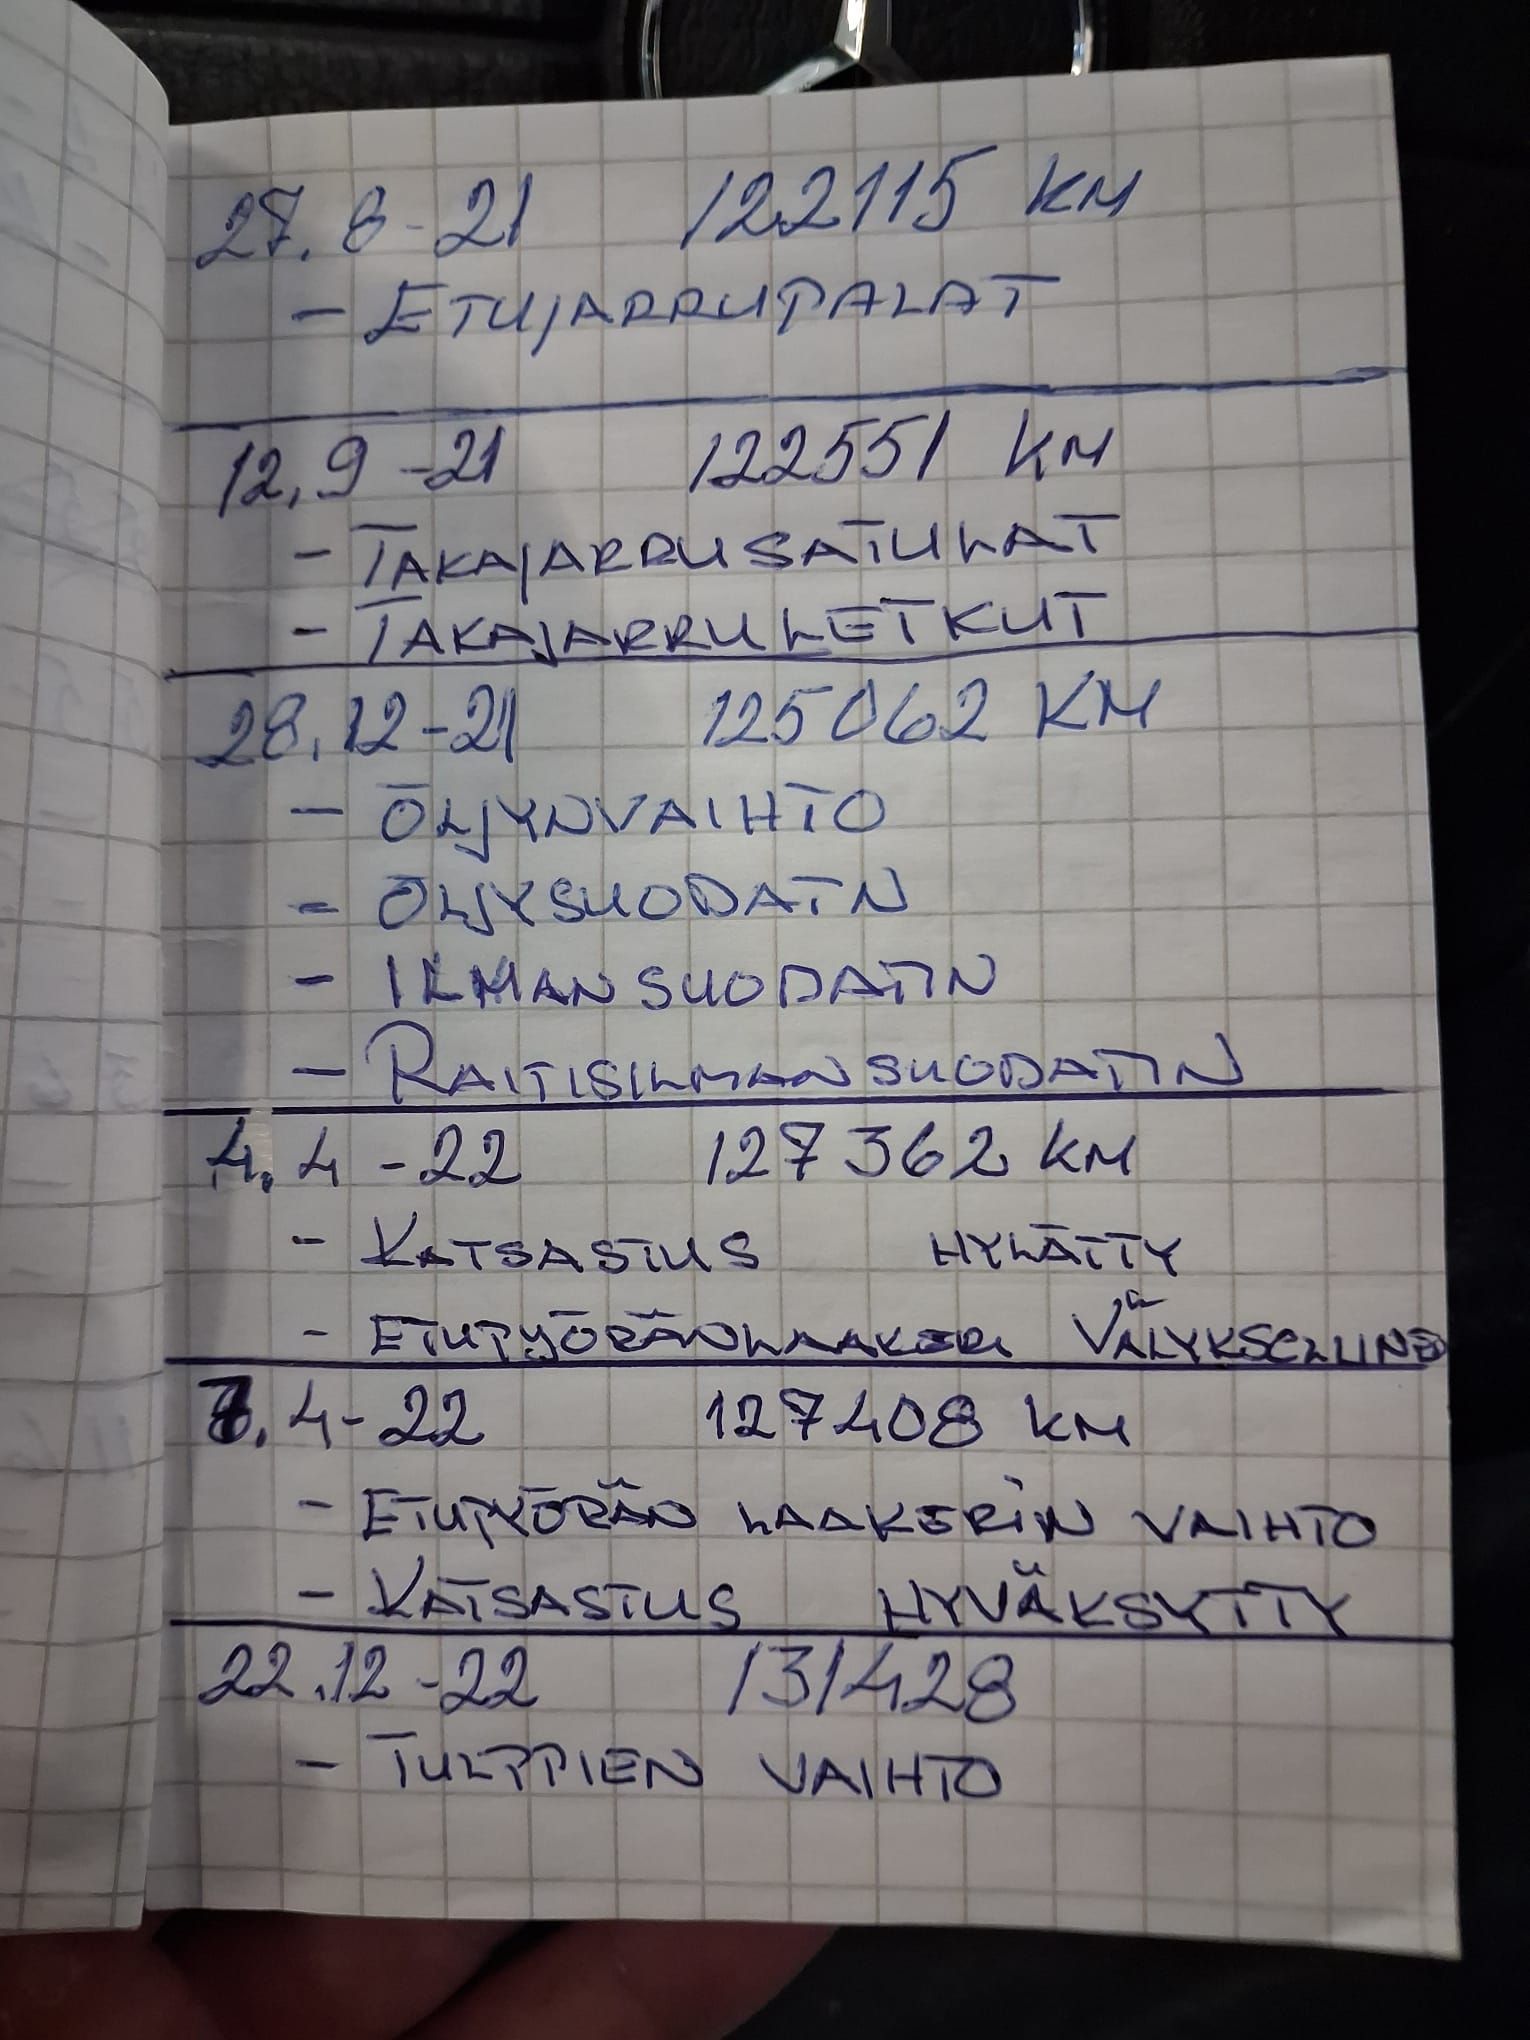 27.8-21 122115 KM
- ETUJARRUPALAT
12.9-21 122551 KM
- TAKAJARRUSATULAT
- TAKAJARRULETKUT
28.12-21 125062 KM
- ÖLJYNVAIHTO
- ÖLJYSUODATN
- ILMANSUODATIN
- RAITISILMANSUODATIN
4.4-22 127362 KM
- KATSASTUS HYLÄTTY
- ETUPYÖRÄNLAAKERI VÄLYKSELLINE
7.4-22 127408 KM
- ETUPYÖRÄN LAAKERIN VAIHTO
- KATSASTUS HYVÄKSYTTY
22.12-22 131428
- TULPPIEN VAIHTO